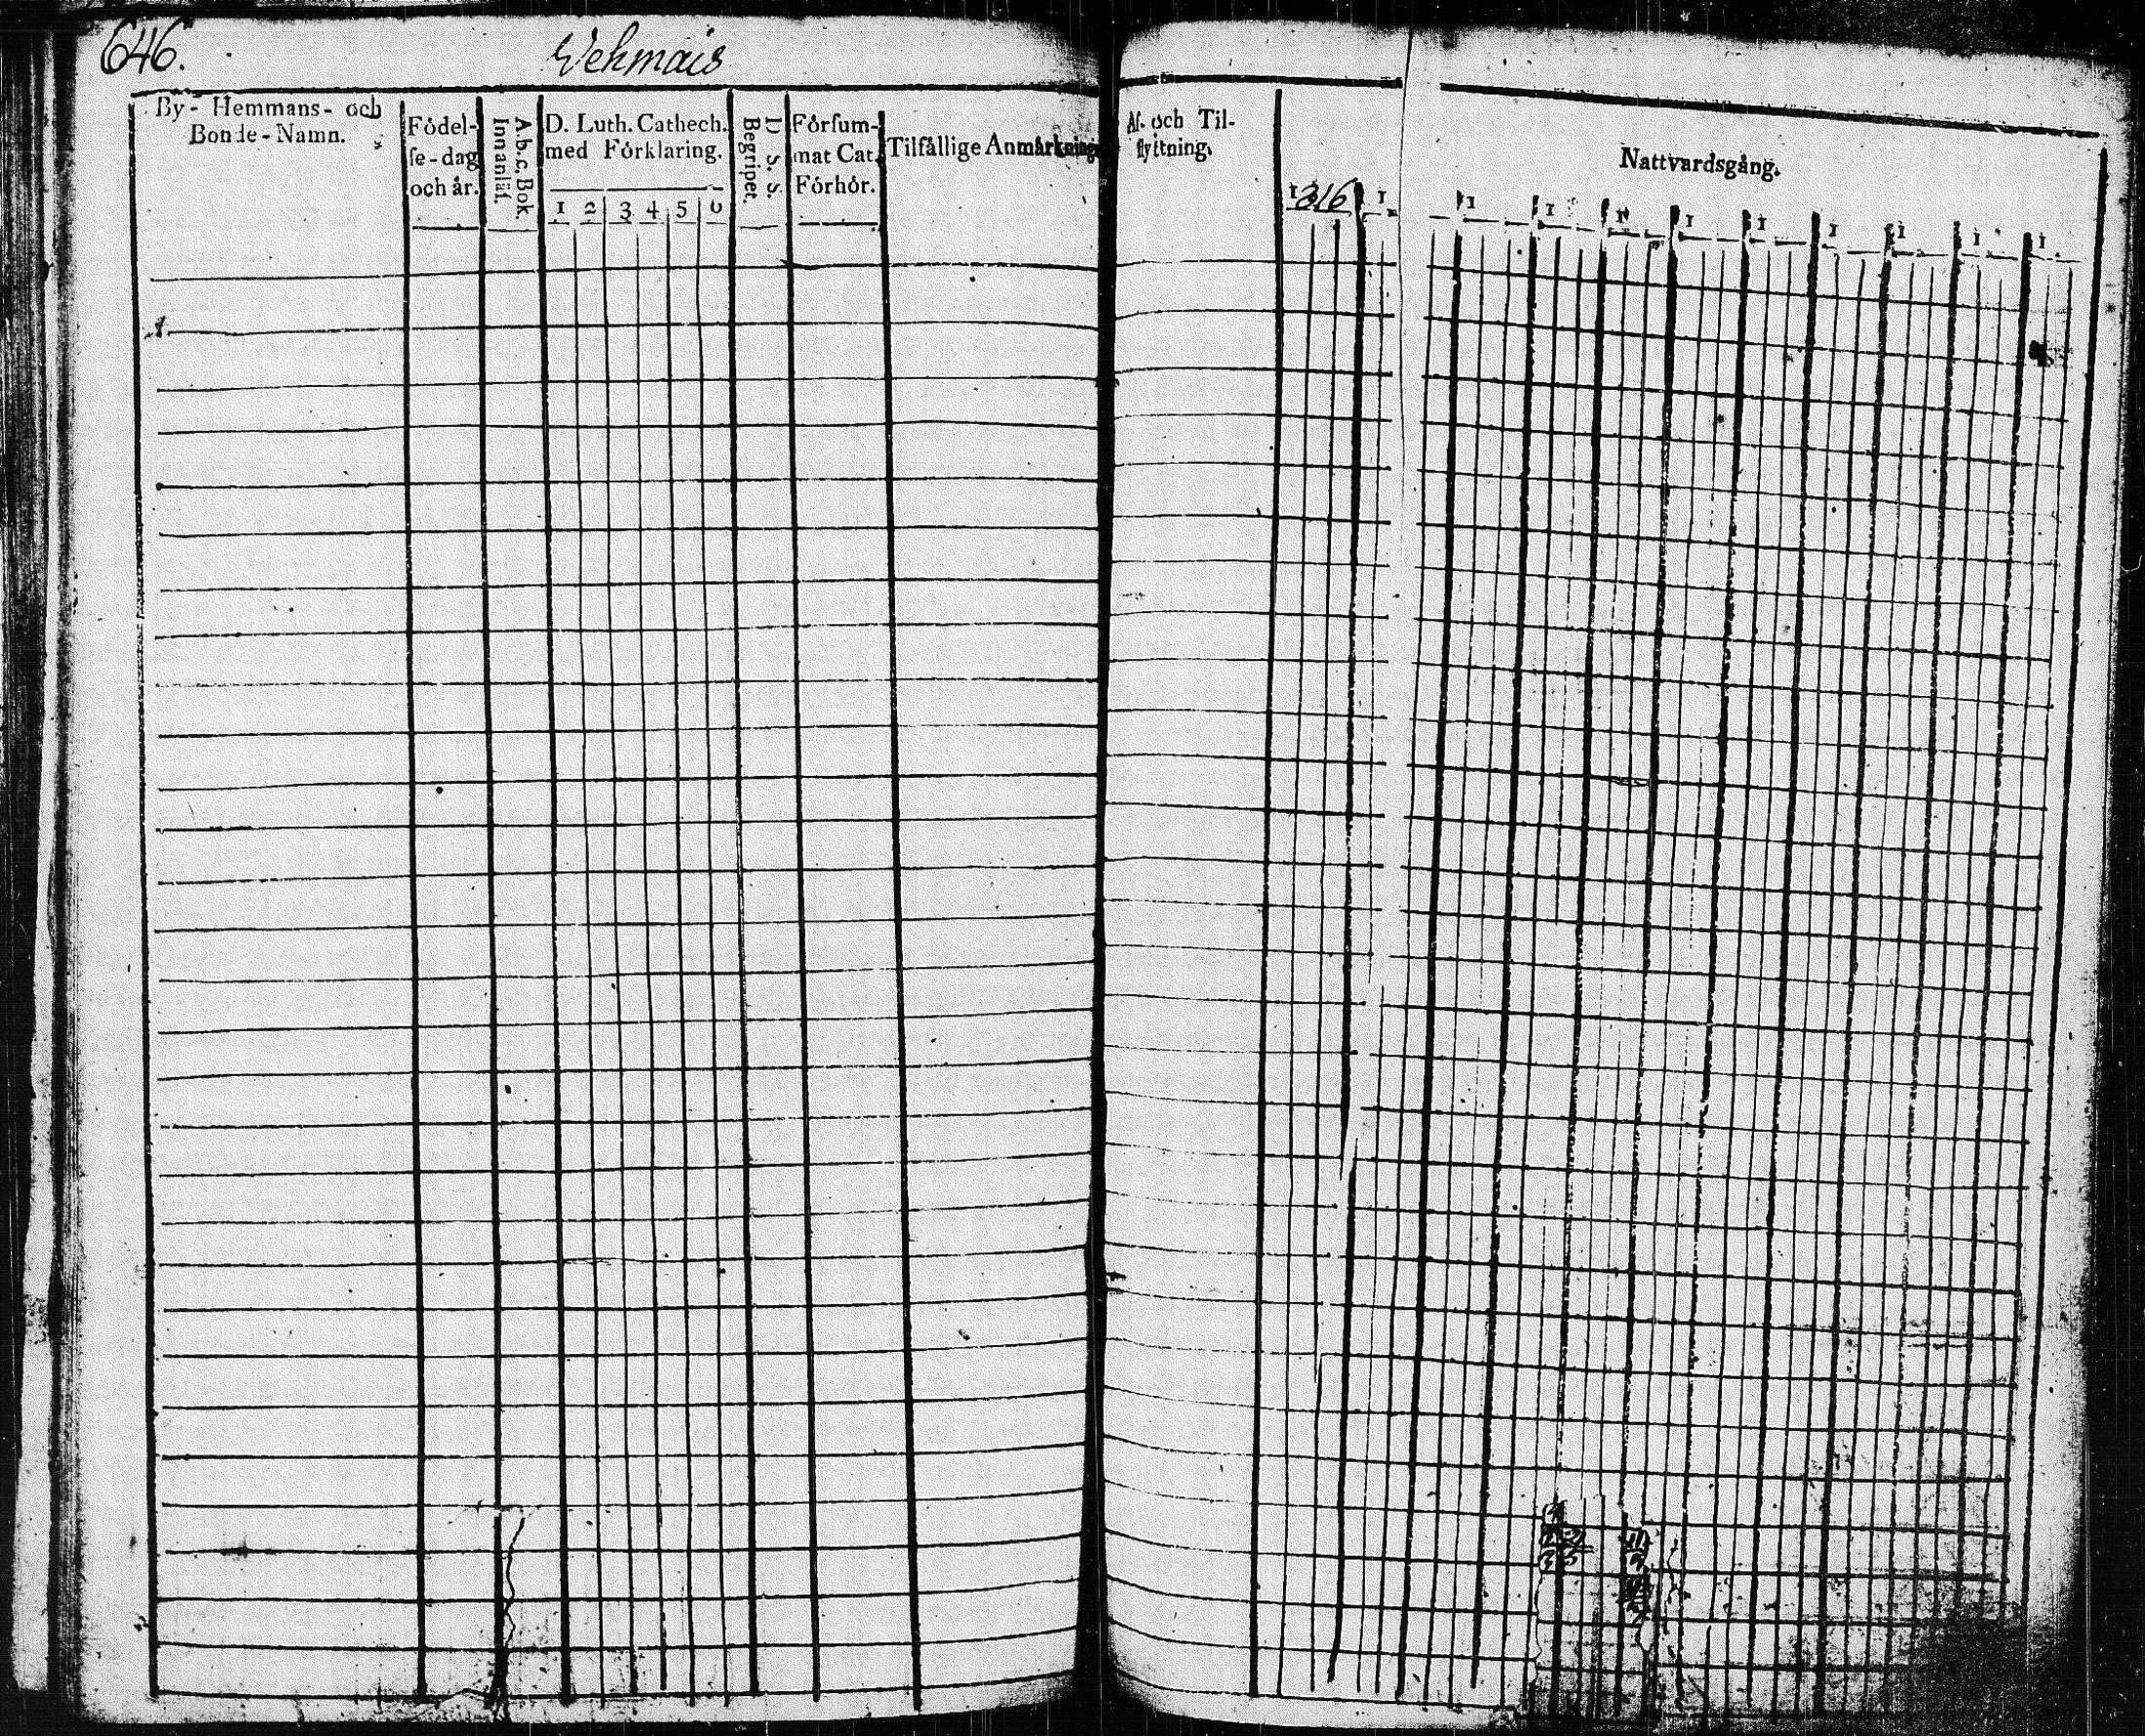 646.
Wehmais
By- Hemmans- och
Bonde-Namn.
Födel-
se-dag
och år.
A.b.c, Bok.
Innanläs.
D. Luth. Cathech.
med Förklaring.
1 2 3 4 5 6
D. S. S.
Begripet.
Försum-
mat Cat.
Förhör.
Tilfällige Anmärkningar
Af- och Til-
flyttning.
Nattvardsgång.
1816 1 1 1 1 1 1 1 1 1 1